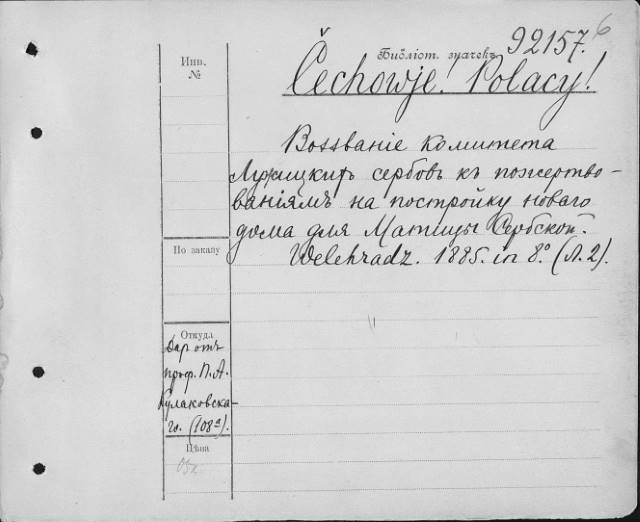 Инв.
№
Библіот. значекъ 92157. 6
Čechowje! Polacy!
Воззваніе комитета
Лужицкихъ сербовъ къ пожертво-
ваніямъ на постройку новаго
дома для Матицы Сербской.
Welehradz. 1885. in 8.° (Л. 2).
По заказу
Откуда
Даръ отъ
проф. П. А.
Кулаковска-
го. (108²).
Цѣна